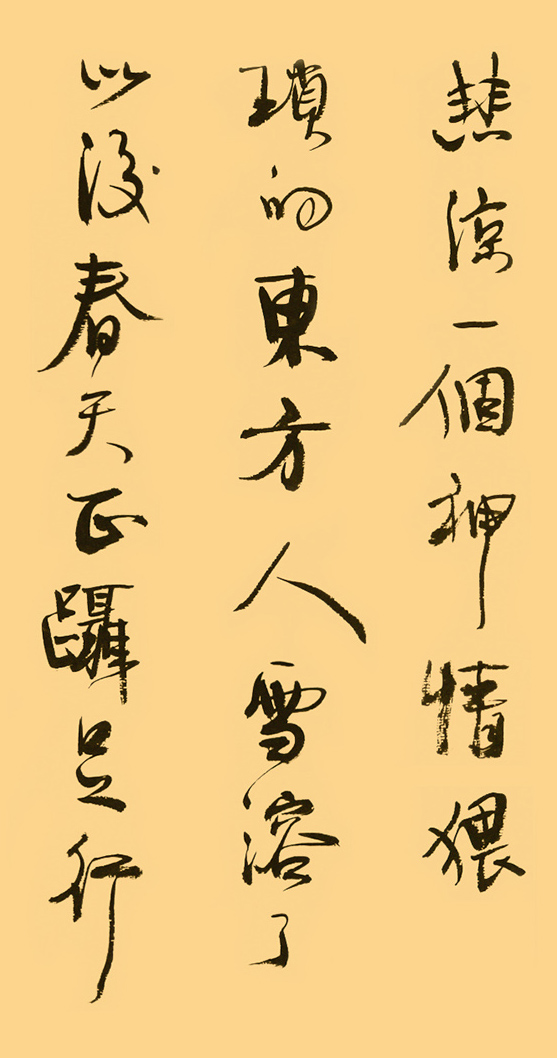 悲涼一個神情猥
瑣的東方人雪溶了
以後春天正躡足行